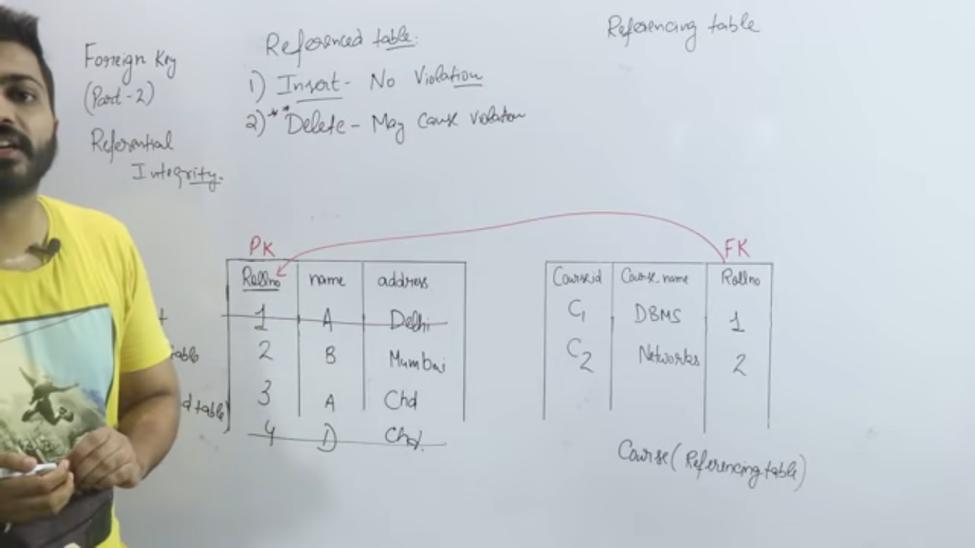 Foreign Key
(Part-2)
Referential
Integrity.
Referenced table:
1) Insert - No Violation
2) ** Delete - May Cause Violation
Referencing table
PK
Rollno name address
1 A Delhi
2 B Mumbai
3 A Chd
4 D Chd.
FK
Course id Course name Rollno
C1 DBMS 1
C2 Networks 2
Course (Referencing table)
d table)